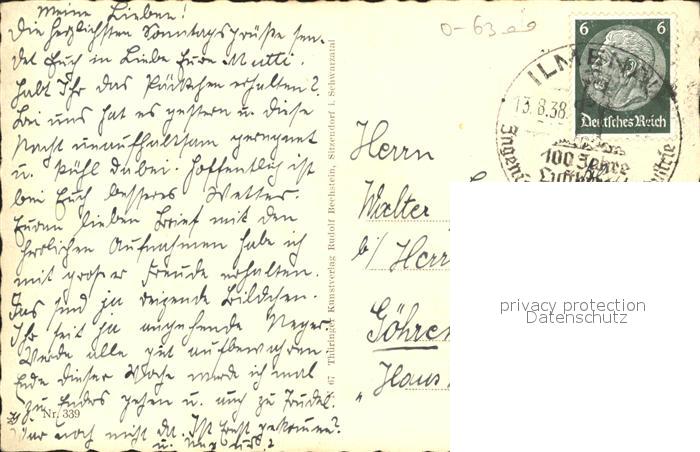 Meine Lieben!
Die herzlichsten Sonntagsgrüße sen-
det Euch in Liebe Eure Mutti.
Habt Ihr das Päckchen erhalten?
Bei uns hat es gestern u. diese
Nacht unaufhaltsam geregnet
u. kühl dabei. Hoffentlich ist
bei Euch besseres Wetter.
Euren lieben Brief mit den
herrlichen Aufnahmen habe ich
mit großer Freude erhalten.
Das sind ja reizende Bildchen.
Ihr seit ja angehende Neger.
Werde alle gut aufbewahren.
Ende dieser Woche werde ich mal
zu Endes gehen u. auch zu Trudel.
War noch nicht da. Ist Ernst gekommen?
Nr. 339
67 Thüringer Kunstverlag Rudolf Bechstein, Sitzendorf i. Schwarzatal
0-63
6 6
Deutsches Reich
ILMENAU
13.8.38
100 Jahre
Herrn
Walter
b/ Herr
Göhren
"Haus
privacy protection
Datenschutz